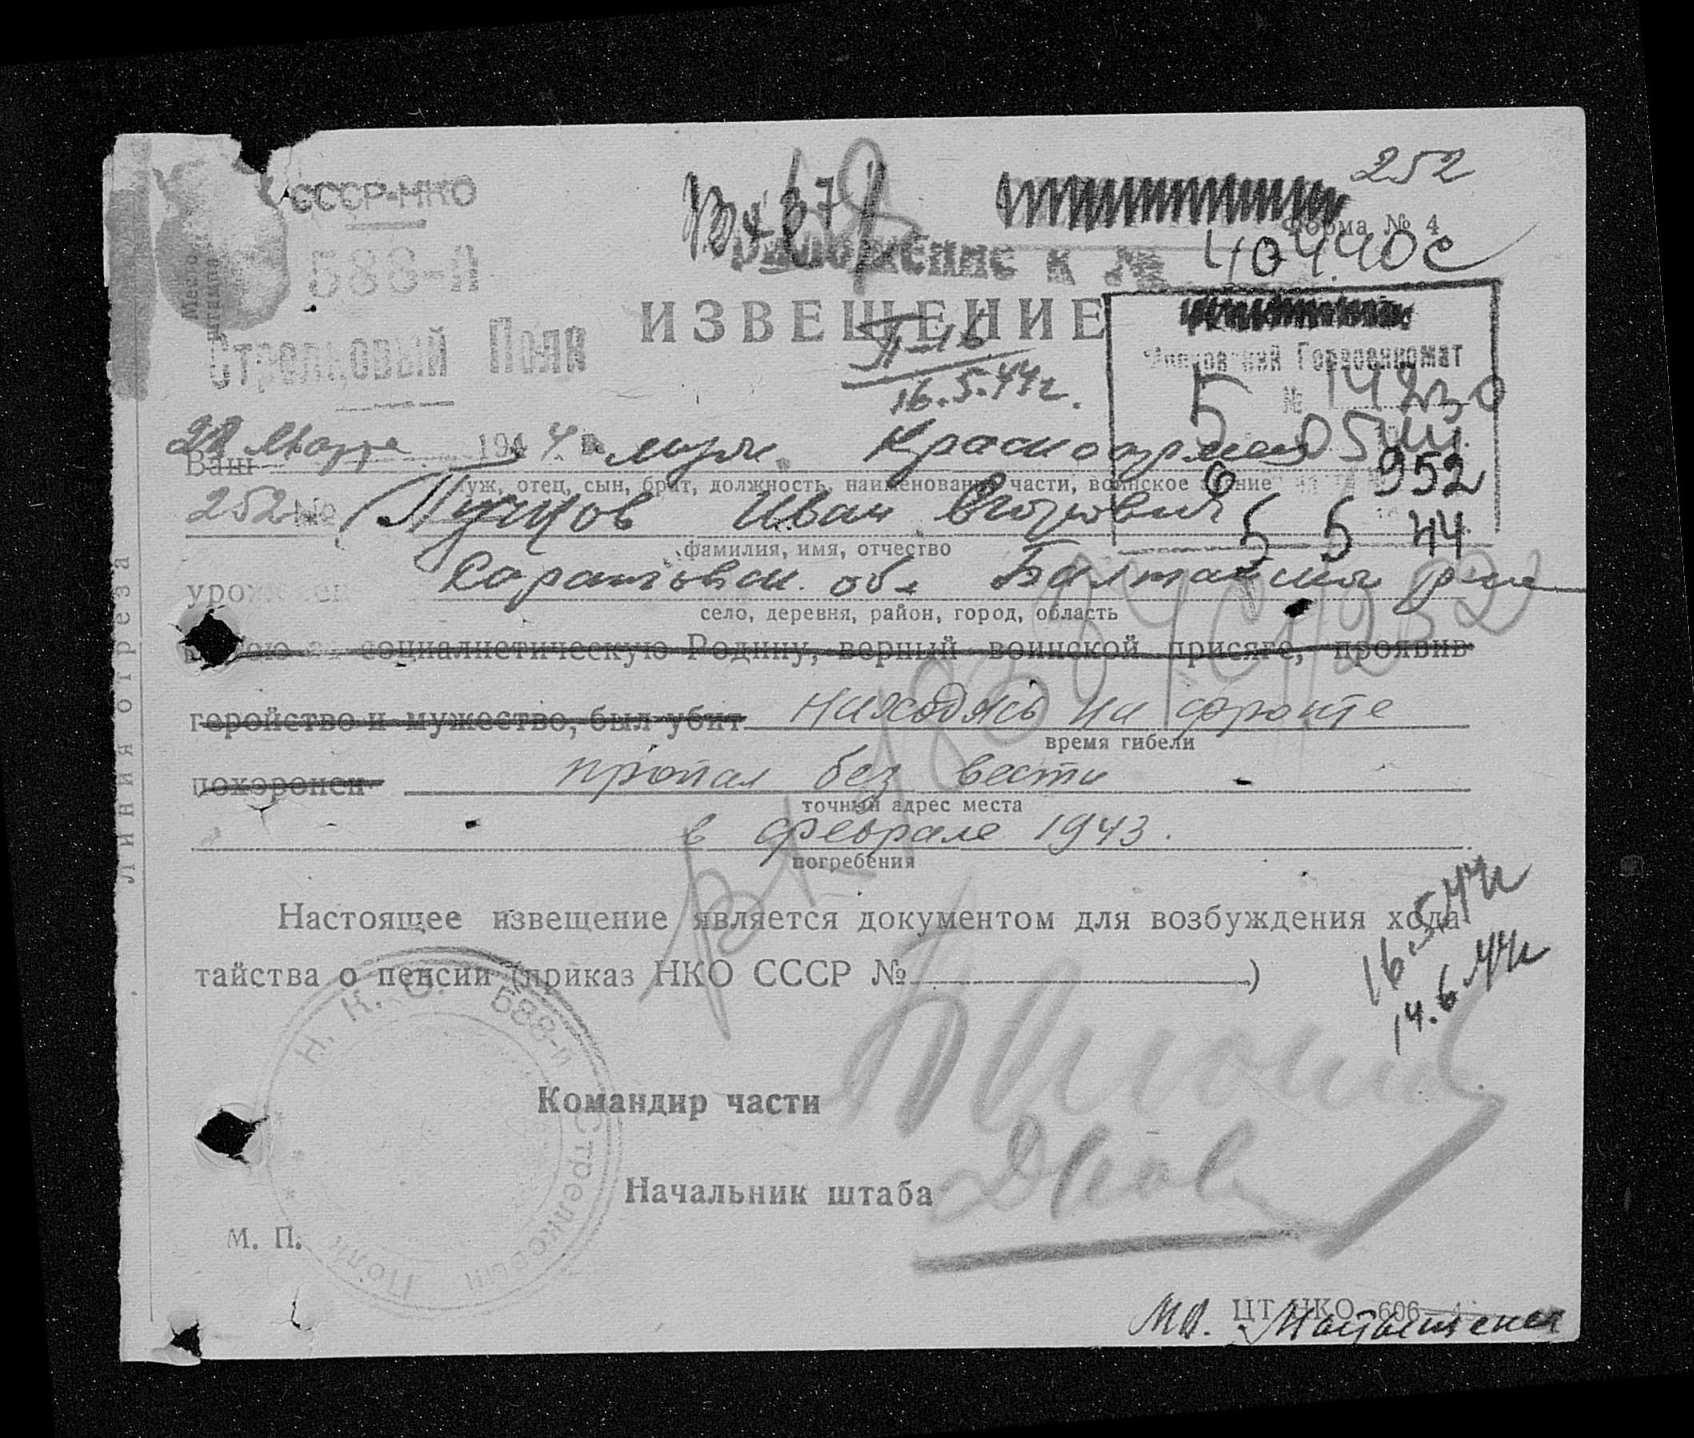 252
СССР-НКО
Форма № 4
588-п
Приложение к №
40440с
ИЗВЕЩЕНИЕ
Стрелковый Полк
П-16
16.5.44г.
Горвоенкомат
№ 14230
Марта 1944 г.
Ваш муж Красноармеец
муж, отец, сын, брат, должность, наименование части, воинское звание
952
252 №
Иван Егорович
5 5 44
фамилия, имя, отчество
Саратовск. обл Балтайский р-не
село, деревня, район, город, область
социалистическую Родину, верный воинской присяге, проявив
геройство и мужество, был убит находясь на фронте
время гибели
похоронен пропал без вести
точный адрес места
в феврале 1943.
погребения
Линия отреза
Настоящее извещение является документом для возбуждения хода-
тайства о пенсии (приказ НКО СССР № )
16.5.44г
14.6.44г
Н. К. О. 588-п Стрелковый Полк
Командир части
Начальник штаба
М. П.
ЦТ НКО 606